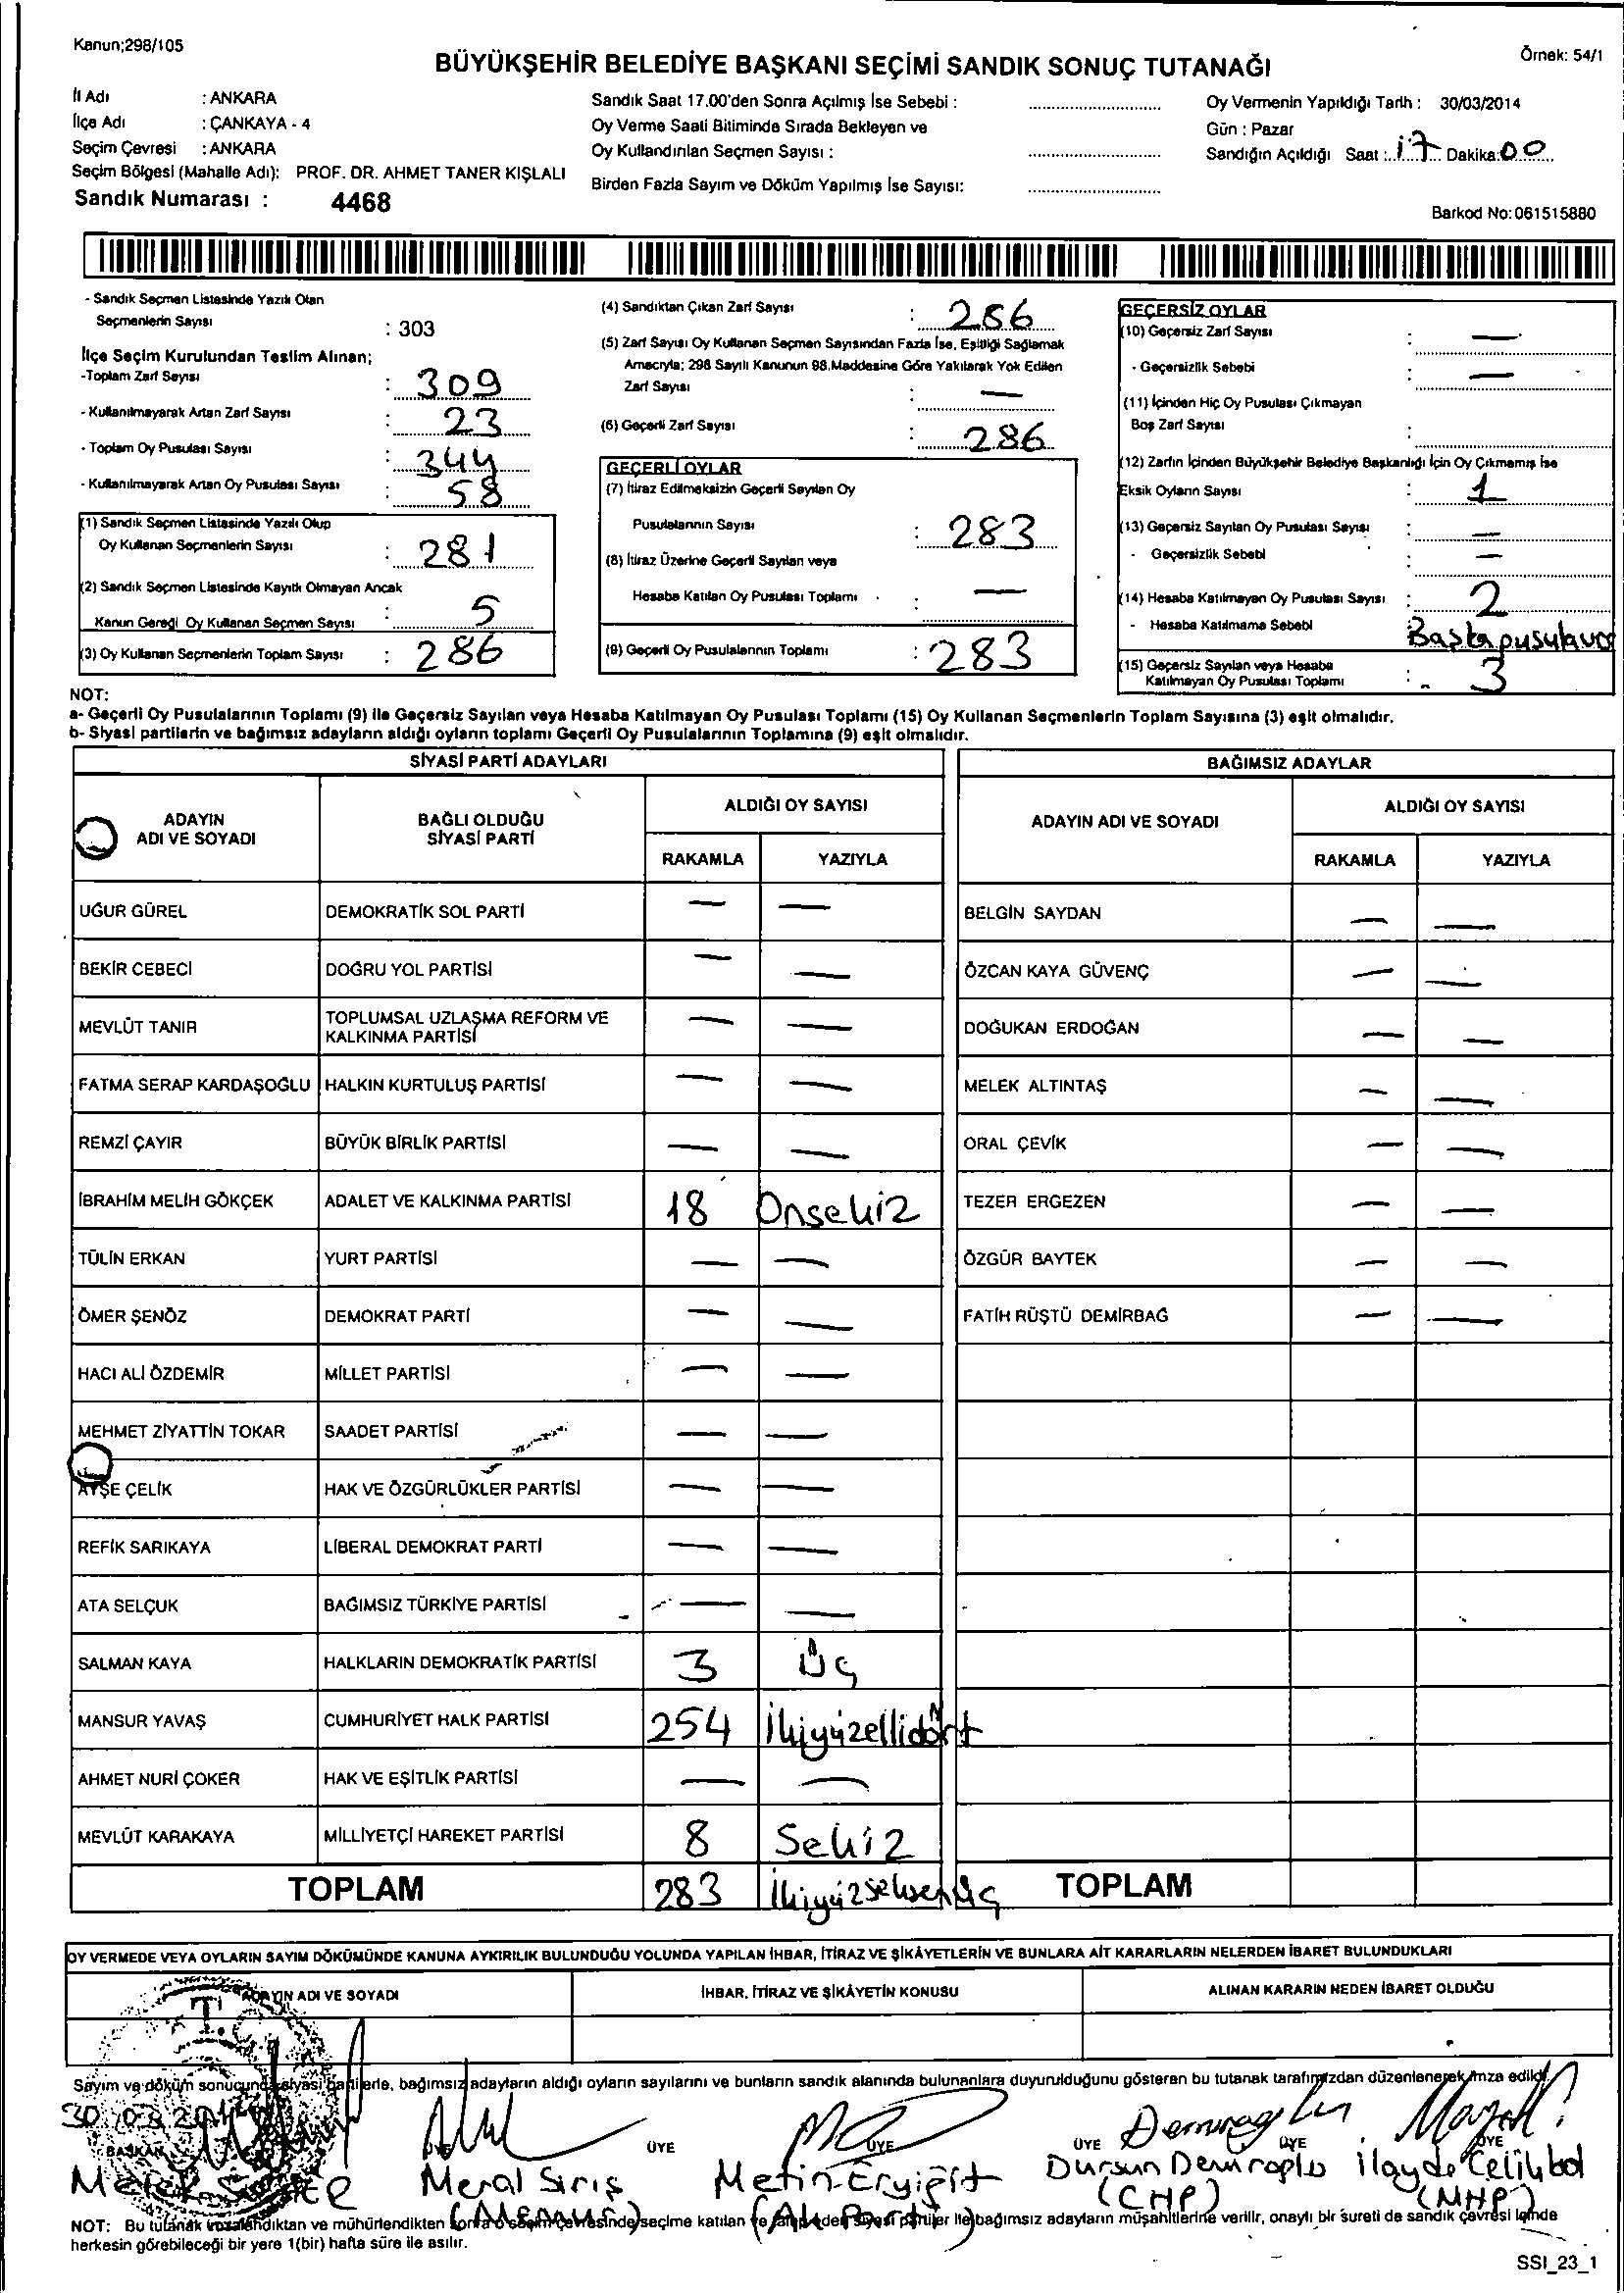 Kanun;298/105
BÜYÜKŞEHİR BELEDİYE BAŞKANI SEÇİMİ SANDIK SONUÇ TUTANAĞI
Örnek: 54/1
İl Adı : ANKARA
İlçe Adı : ÇANKAYA - 4
Seçim Çevresi : ANKARA
Seçim Bölgesi (Mahalle Adı): PROF. DR. AHMET TANER KIŞLALI
Sandık Numarası : 4468
Sandık Saat 17.00'den Sonra Açılmış İse Sebebi :
Oy Verme Saati Bitiminde Sırada Bekleyen ve
Oy Kullandırılan Seçmen Sayısı :
Birden Fazla Sayım ve Döküm Yapılmış İse Sayısı:
Oy Vermenin Yapıldığı Tarih : 30/03/2014
Gün : Pazar
Sandığın Açıldığı Saat : 17 Dakika: 00
Barkod No: 061515880
- Sandık Seçmen Listesinde Yazılı Olan
Seçmenlerin Sayısı : 303
İlçe Seçim Kurulundan Teslim Alınan;
-Toplam Zarf Sayısı : 309
- Kullanılmayarak Artan Zarf Sayısı : 23
- Toplam Oy Pusulası Sayısı : 344
- Kullanılmayarak Artan Oy Pusulası Sayısı : 58
(1) Sandık Seçmen Listesinde Yazılı Olup
Oy Kullanan Seçmenlerin Sayısı : 281
(2) Sandık Seçmen Listesinde Kayıtlı Olmayan Ancak
Kanun Gereği Oy Kullanan Seçmen Sayısı : 5
(3) Oy Kullanan Seçmenlerin Toplam Sayısı : 286
(4) Sandıktan Çıkan Zarf Sayısı : 286
(5) Zarf Sayısı Oy Kullanan Seçmen Sayısından Fazla İse, Eşitliği Sağlamak
Amacıyla; 298 Sayılı Kanunun 98.Maddesine Göre Yakılarak Yok Edilen
Zarf Sayısı : —
(6) Geçerli Zarf Sayısı : 286
GEÇERLİ OYLAR
(7) İtiraz Edilmeksizin Geçerli Sayılan Oy
Pusulalarının Sayısı : 283
(8) İtiraz Üzerine Geçerli Sayılan veya
Hesaba Katılan Oy Pusulası Toplamı : —
(9) Geçerli Oy Pusulalarının Toplamı : 283
GEÇERSİZ OYLAR
(10) Geçersiz Zarf Sayısı : —
- Geçersizlik Sebebi : —
(11) İçinden Hiç Oy Pusulası Çıkmayan
Boş Zarf Sayısı :
(12) Zarfın İçinden Büyükşehir Belediye Başkanlığı İçin Oy Çıkmamış İse
Eksik Oyların Sayısı : 1
(13) Geçersiz Sayılan Oy Pusulası Sayısı : —
- Geçersizlik Sebebi : —
(14) Hesaba Katılmayan Oy Pusulası Sayısı : 2
- Hesaba Katılmama Sebebi Başka pusula var
(15) Geçersiz Sayılan veya Hesaba
Katılmayan Oy Pusulası Toplamı : 3
NOT:
a- Geçerli Oy Pusulalarının Toplamı (9) ile Geçersiz Sayılan veya Hesaba Katılmayan Oy Pusulası Toplamı (15) Oy Kullanan Seçmenlerin Toplam Sayısına (3) eşit olmalıdır.
b- Siyasi partilerin ve bağımsız adayların aldığı oyların toplamı Geçerli Oy Pusulalarının Toplamına (9) eşit olmalıdır.
SİYASİ PARTİ ADAYLARI
ADAYIN ADI VE SOYADI
BAĞLI OLDUĞU SİYASİ PARTİ
ALDIĞI OY SAYISI
RAKAMLA YAZIYLA
UĞUR GÜREL DEMOKRATİK SOL PARTİ — —
BEKİR CEBECİ DOĞRU YOL PARTİSİ — —
MEVLÜT TANIR TOPLUMSAL UZLAŞMA REFORM VE KALKINMA PARTİSİ — —
FATMA SERAP KARDAŞOĞLU HALKIN KURTULUŞ PARTİSİ — —
REMZİ ÇAYIR BÜYÜK BİRLİK PARTİSİ — —
İBRAHİM MELİH GÖKÇEK ADALET VE KALKINMA PARTİSİ 18 Onsekiz
TÜLİN ERKAN YURT PARTİSİ — —
ÖMER ŞENÖZ DEMOKRAT PARTİ — —
HACI ALİ ÖZDEMİR MİLLET PARTİSİ — —
MEHMET ZİYATTİN TOKAR SAADET PARTİSİ — —
AYŞE ÇELİK HAK VE ÖZGÜRLÜKLER PARTİSİ — —
REFİK SARIKAYA LİBERAL DEMOKRAT PARTİ — —
ATA SELÇUK BAĞIMSIZ TÜRKİYE PARTİSİ — —
SALMAN KAYA HALKLARIN DEMOKRATİK PARTİSİ 3 Üç
MANSUR YAVAŞ CUMHURİYET HALK PARTİSİ 254 İkiyüzellidört
AHMET NURİ ÇOKER HAK VE EŞİTLİK PARTİSİ — —
MEVLÜT KARAKAYA MİLLİYETÇİ HAREKET PARTİSİ 8 Sekiz
TOPLAM 283 İkiyüzseksenüç
BAĞIMSIZ ADAYLAR
ADAYIN ADI VE SOYADI
ALDIĞI OY SAYISI
RAKAMLA YAZIYLA
BELGİN SAYDAN — —
ÖZCAN KAYA GÜVENÇ — —
DOĞUKAN ERDOĞAN — —
MELEK ALTINTAŞ — —
ORAL ÇEVİK — —
TEZER ERGEZEN — —
ÖZGÜR BAYTEK — —
FATİH RÜŞTÜ DEMİRBAĞ — —
TOPLAM
OY VERMEDE VEYA OYLARIN SAYIM DÖKÜMÜNDE KANUNA AYKIRILIK BULUNDUĞU YOLUNDA YAPILAN İHBAR, İTİRAZ VE ŞİKÂYETLERİN VE BUNLARA AİT KARARLARIN NELERDEN İBARET BULUNDUKLARI
ADAYIN ADI VE SOYADI
İHBAR, İTİRAZ VE ŞİKÂYETİN KONUSU
ALINAN KARARIN NEDEN İBARET OLDUĞU
T.C.
Sayım ve döküm sonucunda siyasi partilerle, bağımsız adayların aldığı oyların sayılarını ve bunların sandık alanında bulunanlara duyurulduğunu gösteren bu tutanak tarafımızdan düzenlenerek imza edildi.
30.03.2014
BAŞKAN ÜYE ÜYE ÜYE ÜYE ÜYE
Melek
Meral Siriş
(Memur)
Metin Eryiğit
(Ak Parti)
Dursun Demiroğlu
(CHP)
İlayda Çelikbol
(MHP)
NOT: Bu tutanak imzalandıktan ve mühürlendikten sonra o seçim çevresinde seçime katılan ve talep eden siyasi partiler ile bağımsız adayların müşahitlerine verilir, onaylı bir sureti de sandık çevresi içinde
herkesin görebileceği bir yere 1(bir) hafta süre ile asılır.
SSI_23_1